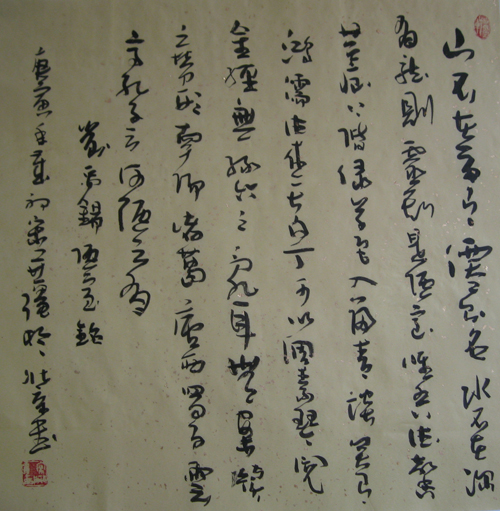 山不在高有仙則名水不在深
有龍則靈斯是陋室唯吾德馨
苔痕上階綠草色入簾青談笑有
鴻儒往來無白丁可以調素琴閱
金經無絲竹之亂耳無案牘
之勞形南陽諸葛廬西蜀子雲
亭孔子云何陋之有
劉禹錫陋室銘
庚寅年
書